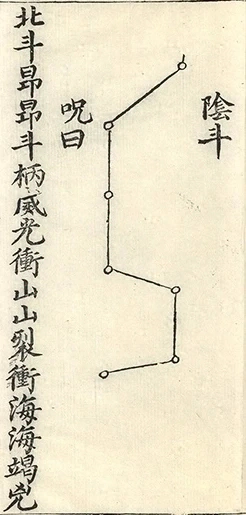 陰斗
呪曰
北斗昂昂斗柄威光衝山山裂衝海海竭兇